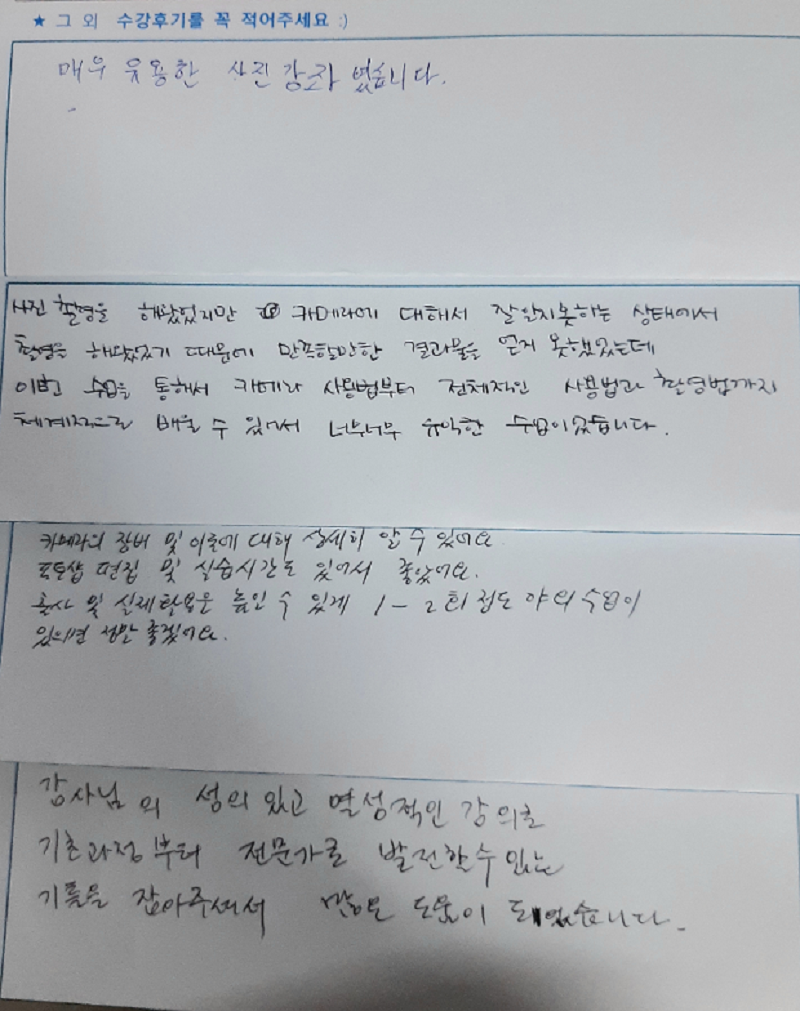 ★ 그 외 수강후기를 꼭 적어주세요 :)
매우 유용한 사진 강좌 였습니다.
사진 촬영을 해왔었지만 카메라에 대해서 잘 알지못하는 상태에서
촬영을 해왔었기 때문에 만족할만한 결과물을 얻지 못했었는데
이번 수업을 통해서 카메라 사용법부터 전체적인 사용법과 촬영법까지
체계적으로 배울 수 있어서 너무너무 유익한 수업이었습니다.
카메라의 장비 및 이론에 대해 상세히 알 수 있어요
포토샵 편집 및 실습시간도 있어서 좋았어요.
출사 및 실제 활용을 높일 수 있게 1-2회 정도 야외수업이
있으면 정말 좋겠어요.
강사님의 성의 있고 열성적인 강의로
기초과정부터 전문가로 발전할수 있는
기틀을 잡아주셔서 많은 도움이 되었습니다.